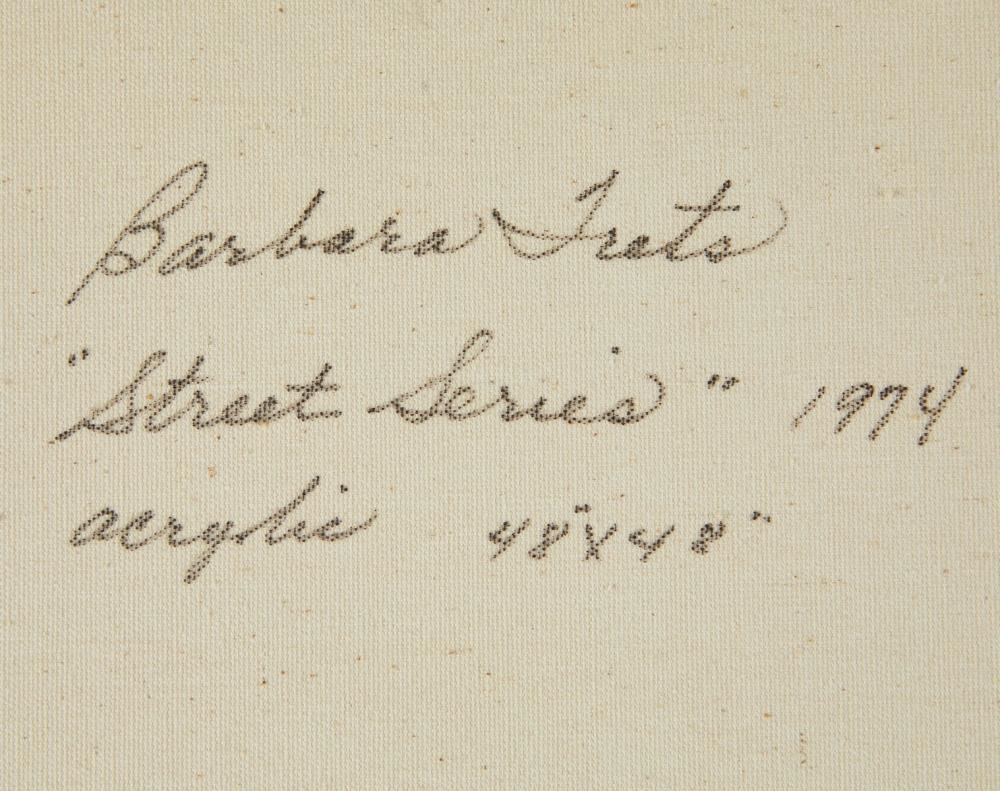 Barbara Frets
"Street Series" 1974
acrylic 48"x48"